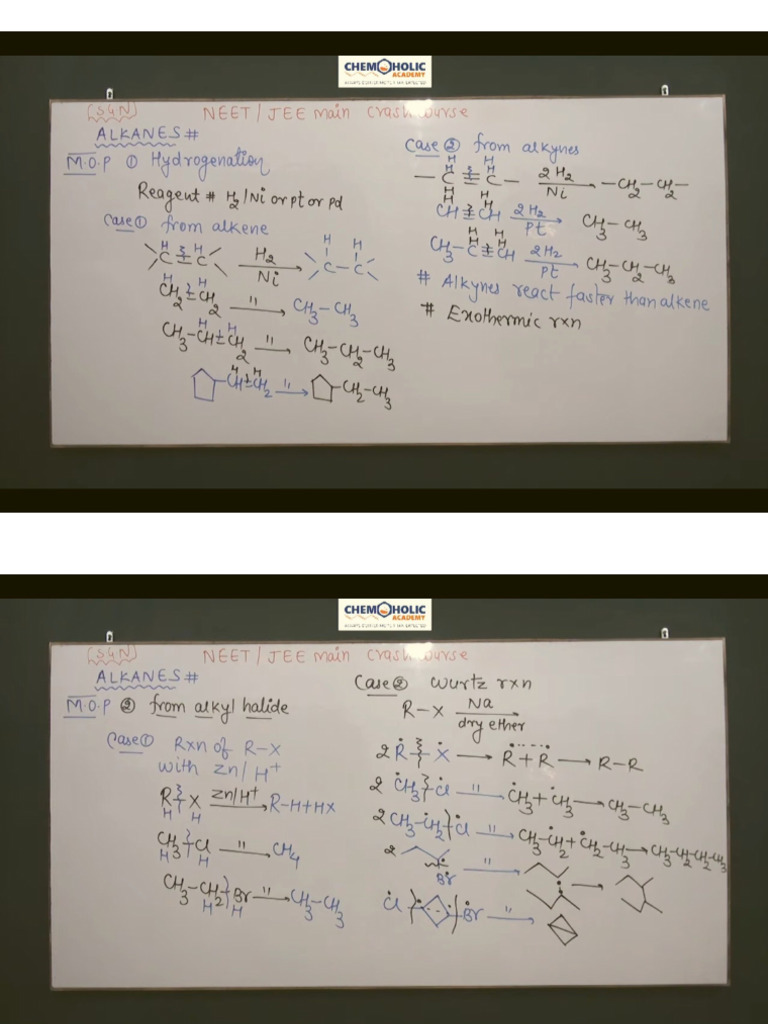 CHEMOHOLIC
ACADEMY
(S4N) NEET / JEE main crash course
ALKANES #
M.O.P ① Hydrogenation
Reagent # H2/Ni or pt or pd
Case① from alkene
C=C H2/Ni → H H C-C
CH2=CH2 〃→ CH3-CH3
CH3-CH=CH2 〃→ CH3-CH2-CH3
CH=CH2 〃→ CH2-CH3
Case② from alkynes
-C≡C- 2H2/Ni → -CH2-CH2-
CH≡CH 2H2/Pt → CH3-CH3
CH3-C≡CH 2H2/Pt → CH3-CH2-CH3
# Alkynes react faster than alkene
# Exothermic rxn
CHEMOHOLIC
ACADEMY
(S4N) NEET / JEE main crash course
ALKANES #
M.O.P ② from alkyl halide
Case① Rxn of R-X
with Zn/H+
R-X zn/H+ → R-H+HX
H H
CH3-Cl 〃→ CH4
H H
CH3-CH2-Br 〃→ CH3-CH3
H H
Case② wurtz rxn
R-X Na/dry ether →
2 R-X → R + R → R-R
2 CH3-Cl 〃→ CH3 + CH3 → CH3-CH3
2 CH3-CH2-Cl 〃→ CH3-CH2 + CH2-CH3 → CH3-CH2-CH2-CH3
2 Br 〃→ →
Cl Br 〃→